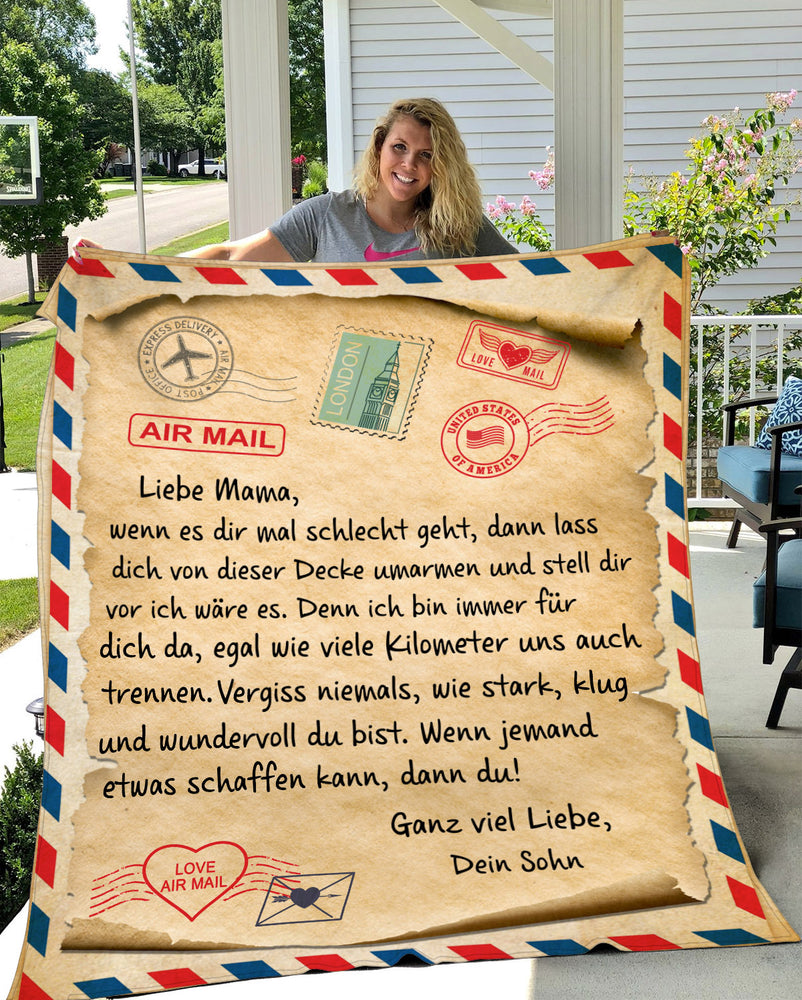 EXPRESS DELIVERY
AIR MAIL
POST OFFICE
LONDON
LOVE MAIL
AIR MAIL
UNITED STATES
OF AMERICA
Liebe Mama,
wenn es dir mal schlecht geht, dann lass
dich von dieser Decke umarmen und stell dir
vor ich wäre es. Denn ich bin immer für
dich da, egal wie viele Kilometer uns auch
trennen. Vergiss niemals, wie stark, klug
und wundervoll du bist. Wenn jemand
etwas schaffen kann, dann du!
Ganz viel Liebe,
Dein Sohn
LOVE
AIR MAIL
SPALDING